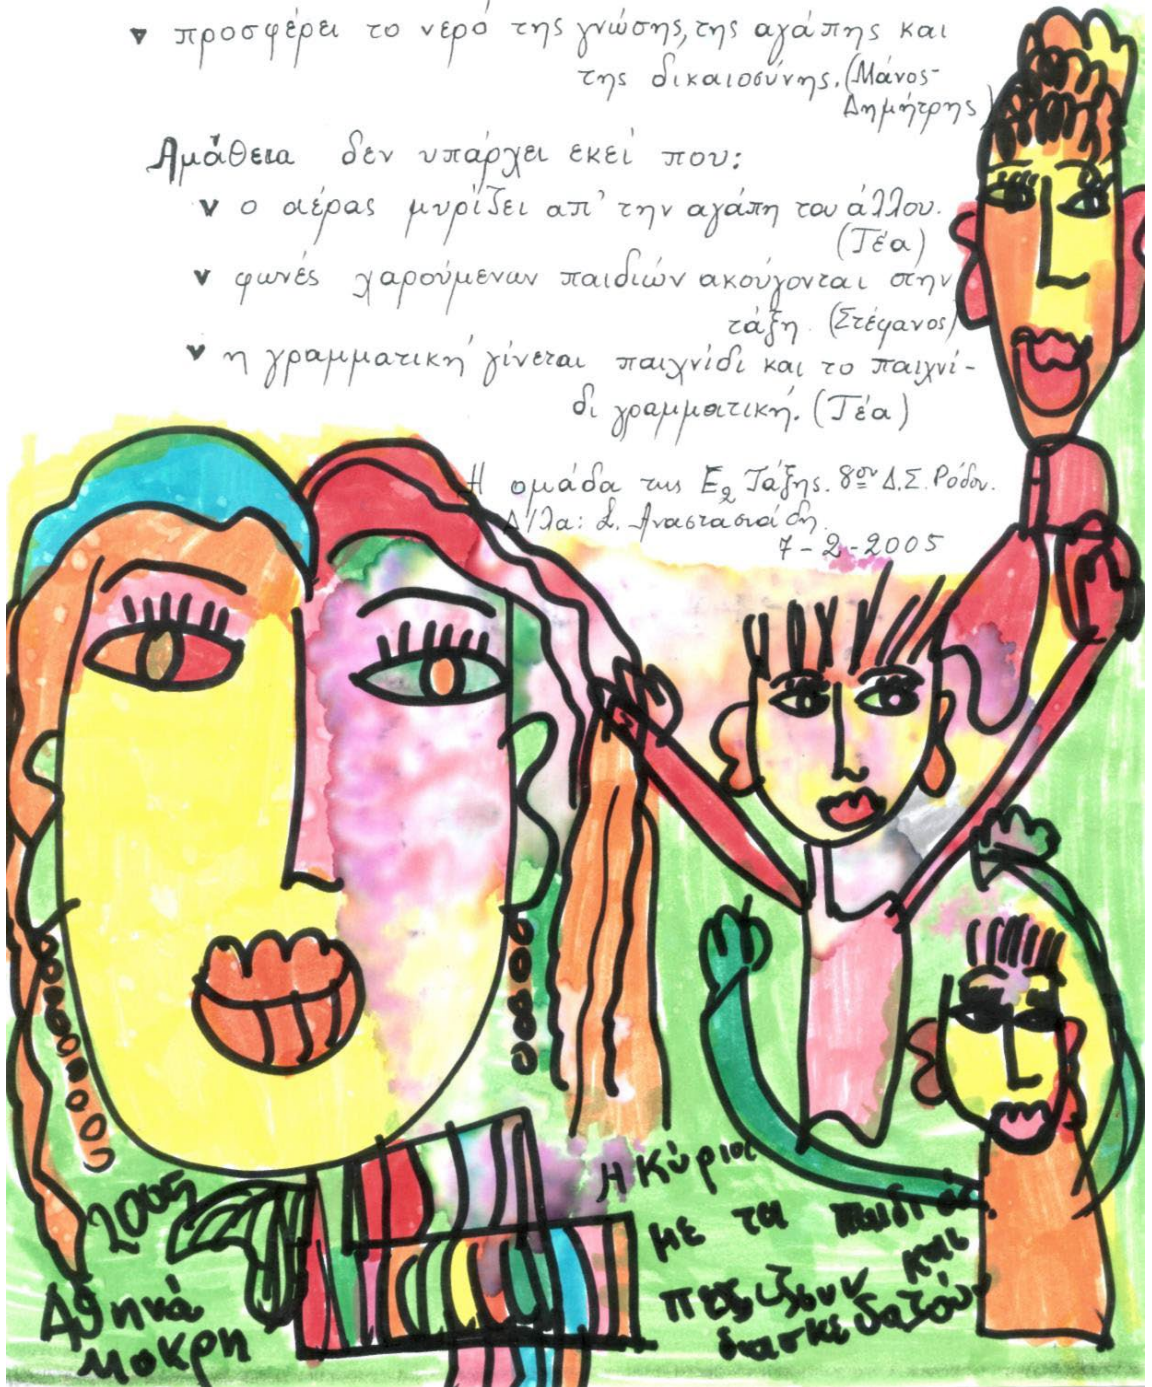 ▼ προσφέρει το νερό της γνώσης, της αγάπης και
της δικαιοσύνης. (Μάνος-
Δημήτρης)
Αμάθεια δεν υπάρχει εκεί που:
v ο αέρας μυρίζει απ' την αγάπη του άλλου.
(Τέα)
v φωνές χαρούμενων παιδιών ακούγονται στην
τάξη. (Στέφανος)
v η γραμματική γίνεται παιχνίδι και το παιχνί-
δι γραμματική. (Τέα)
Η ομάδα της Ε2 Τάξης. 8ου Δ.Σ. Ρόδου.
Δ/λα: Σ. Αναστασιάδη.
7-2-2005
Η Κύριος
με τα παιδιά
και
παίζουν
διασκεδάζουν
2005
Αθηνά
Μοκρη